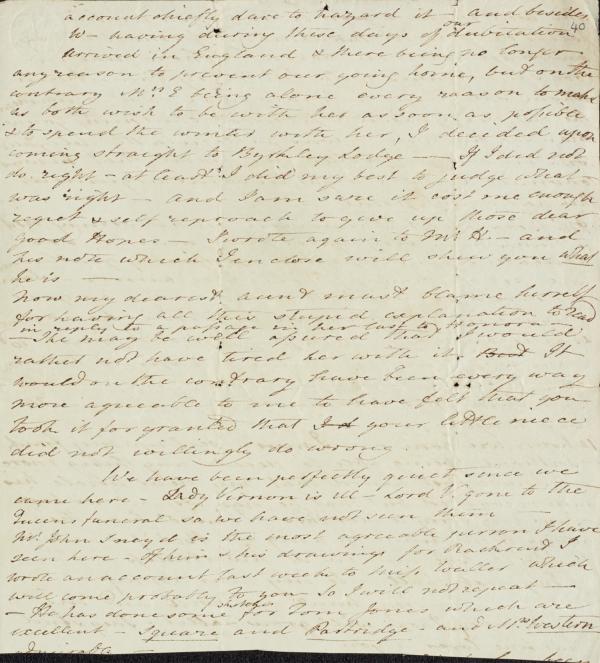 account chiefly dare to hazard it — and besides
40
W— having during these days of our dubitation
arrived in England & there being no longer
any reason to prevent our going home, but on the
contrary Mrs E being alone every reason to make
us both wish to be with her as soon as possible
& to spend the winter with her, I decided upon
coming straight to Byrkley Lodge — If I did not
do right — at least I did my best to judge what
was right — and I am sure it cost me enough
regret & self reproach to give up those dear
good Hopes — I wrote again to Mr H — and
his note which I enclose will shew you what
he is —
Now my dearest aunt must blame herself
for having all this stupid explanation to read
in reply to a passage in her last to Honora
— She may be well assured that I would
rather not have tired her with it. It
would on the contrary have been every way
more agreeable to me to have felt that you
took it for granted that your little niece
did not willingly do wrong.
We have been perfectly quiet since we
came here — Lady Vernon is ill — Lord V. gone to the
Queens funeral so we have not seen them —
Mr. John Sneyd is the most agreeable person I have
seen here — of him & his drawings for Rackrent I
wrote an account last week to Miss Waller which
will come probably to you so I will not repeat —
— He has done some sketches for Tom Jones which are
excellent — Square and Partridge — and Mrs Western
admirable —